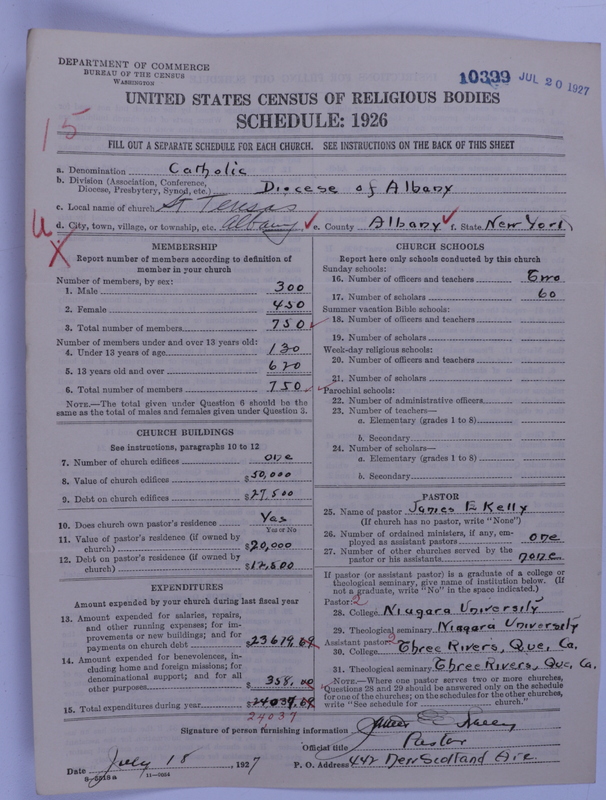 DEPARTMENT OF COMMERCE
BUREAU OF THE CENSUS
WASHINGTON
10399 JUL 20 1927
UNITED STATES CENSUS OF RELIGIOUS BODIES
SCHEDULE: 1926
15
FILL OUT A SEPARATE SCHEDULE FOR EACH CHURCH. SEE INSTRUCTIONS ON THE BACK OF THIS SHEET
a. Denomination Catholic
b. Division (Association, Conference, Diocese, Presbytery, Synod, etc.) Diocese of Albany
c. Local name of church St Teresas
d. City, town, village, or township, etc. Albany e. County Albany f. State New York
MEMBERSHIP
Report number of members according to definition of
member in your church
Number of members, by sex:
1. Male 300
2. Female 450
3. Total number of members 750
Number of members under and over 13 years old:
4. Under 13 years of age 130
5. 13 years old and over 620
6. Total number of members 750
NOTE.—The total given under Question 6 should be the
same as the total of males and females given under Question 3.
CHURCH BUILDINGS
See instructions, paragraphs 10 to 12
7. Number of church edifices one
8. Value of church edifices $50,000
9. Debt on church edifices $27,500
10. Does church own pastor's residence Yes
Yes or No
11. Value of pastor's residence (if owned by
church) $20,000
12. Debt on pastor's residence (if owned by
church) $12,500
EXPENDITURES
Amount expended by your church during last fiscal year
13. Amount expended for salaries, repairs,
and other running expenses; for im-
provements or new buildings; and for
payments on church debt $23679.69
14. Amount expended for benevolences, in-
cluding home and foreign missions; for
denominational support; and for all
other purposes $358.00
15. Total expenditures during year $24037.69
24037
CHURCH SCHOOLS
Report here only schools conducted by this church
Sunday schools:
16. Number of officers and teachers Two
17. Number of scholars 60
Summer vacation Bible schools:
18. Number of officers and teachers
19. Number of scholars
Week-day religious schools:
20. Number of officers and teachers
21. Number of scholars
Parochial schools:
22. Number of administrative officers
23. Number of teachers—
a. Elementary (grades 1 to 8)
b. Secondary
24. Number of scholars—
a. Elementary (grades 1 to 8)
b. Secondary
PASTOR
25. Name of pastor James E Kelly
(If church has no pastor, write "None")
26. Number of ordained ministers, if any, em-
ployed as assistant pastors one
27. Number of other churches served by the
pastor or his assistants none
If pastor (or assistant pastor) is a graduate of a college or
theological seminary, give name of institution below. (If
not a graduate, write "No" in the space indicated.)
Pastor: 2
28. College Niagara University
29. Theological seminary Niagara University
Assistant pastor: 2
30. College Three Rivers, Que, Ca.
31. Theological seminary Three Rivers, Que, Ca.
NOTE.—Where one pastor serves two or more churches,
Questions 28 and 29 should be answered only on the schedule
for one of the churches; on the schedules for the other churches,
write "See schedule for church."
Signature of person furnishing information James E Kelly
Official title Pastor
Date July 18, 1927 P. O. Address 442 New Scotland Ave.
8-5519a 11-9064